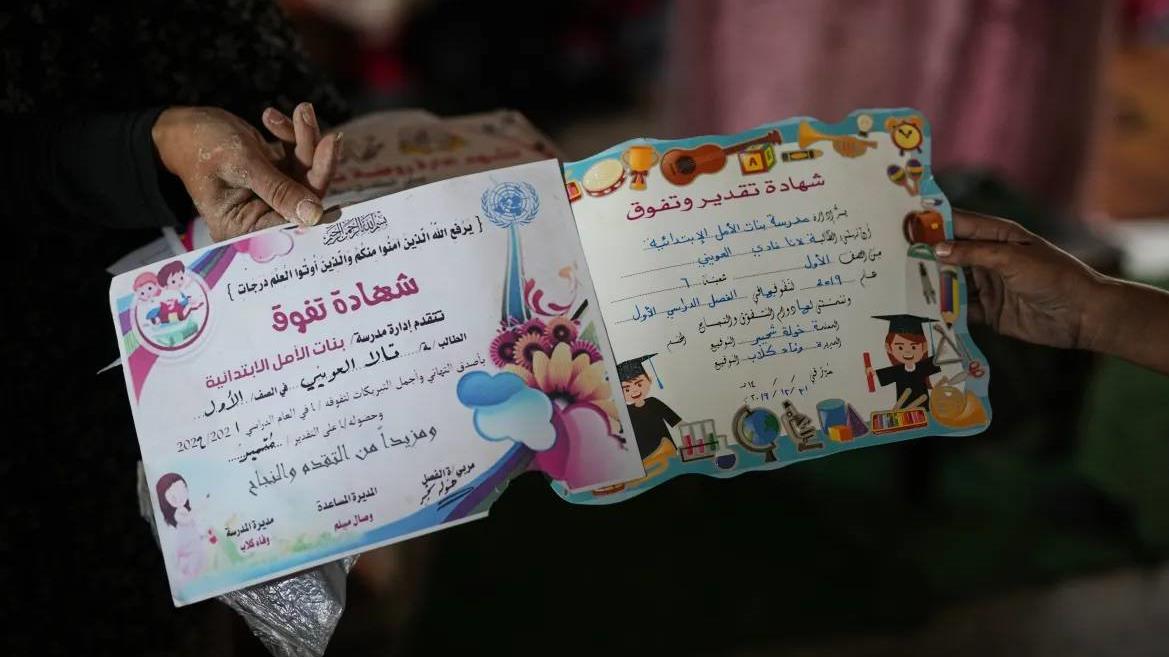 بسم الله الرحمن الرحيم
{ يرفع الله الذين آمنوا منكم والذين أوتوا العلم درجات }
شهادة تفوق
تتقدم إدارة مدرسة/ بنات الأمل الابتدائية
الطالب /ـة/.... تالا العويني .... في الصف/. الأول...
بأصدق التهاني وأجمل التبريكات لتفوقه / ا في العام الدراسي 2021/2022
وحصوله/ا على التقدير /.. متميز....
ومزيداً من التقدم والنجاح
مربي/ة الفصل
خولة شحيبر
المديرة المساعدة
وصال مسلم
مديرة المدرسة
وفاء كلاب
شهادة تقدير وتفوق
يسر إدارة مدرسة بنات الأمل الإبتدائية
أن تهنئ الطالبة لانا فادي العويني
من الصف الأول شعبة ٦
عام ٢٠١٩ لتفوقها في الفصل الدراسي الأول
ونتمنى لها دوام التفوق والنجاح
المعلمة خولة شحيبر التوقيع الختم
المديرة وفاء كلاب التوقيع
٢٠١٩/١٢/٣١